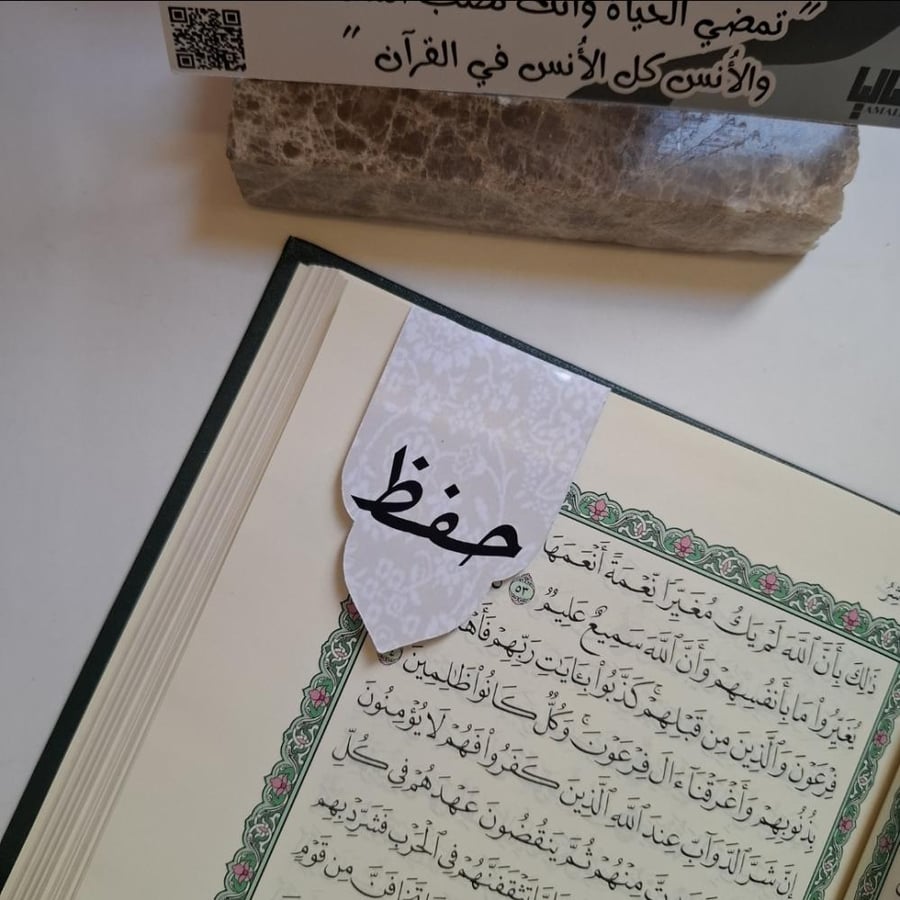 " تمضي الحياة
والأُنس كل الأُنس في القرآن "
حفظ
ذَٰلِكَ بِأَنَّ ٱللَّهَ لَمْ يَكُ مُغَيِّرًا نِّعْمَةً أَنْعَمَهَا
يُغَيِّرُوا۟ مَا بِأَنفُسِهِمْ وَأَنَّ ٱللَّهَ سَمِيعٌ عَلِيمٌ ٥٣
فِرْعَوْنَ وَٱلَّذِينَ مِن قَبْلِهِمْ كَذَّبُوا۟ بِـَٔايَٰتِ رَبِّهِمْ
بِذُنُوبِهِمْ وَأَغْرَقْنَآ ءَالَ فِرْعَوْنَ وَكُلٌّ كَانُوا۟ ظَٰلِمِينَ
إِنَّ شَرَّ ٱلدَّوَآبِّ عِندَ ٱللَّهِ ٱلَّذِينَ كَفَرُوا۟ فَهُمْ لَا يُؤْمِنُونَ
مِنْهُمْ ثُمَّ يَنقُضُونَ عَهْدَهُمْ فِى كُلِّ
تَثْقَفَنَّهُمْ فِى ٱلْحَرْبِ فَشَرِّدْ بِهِم
تَخَافَنَّ مِن قَوْمٍ